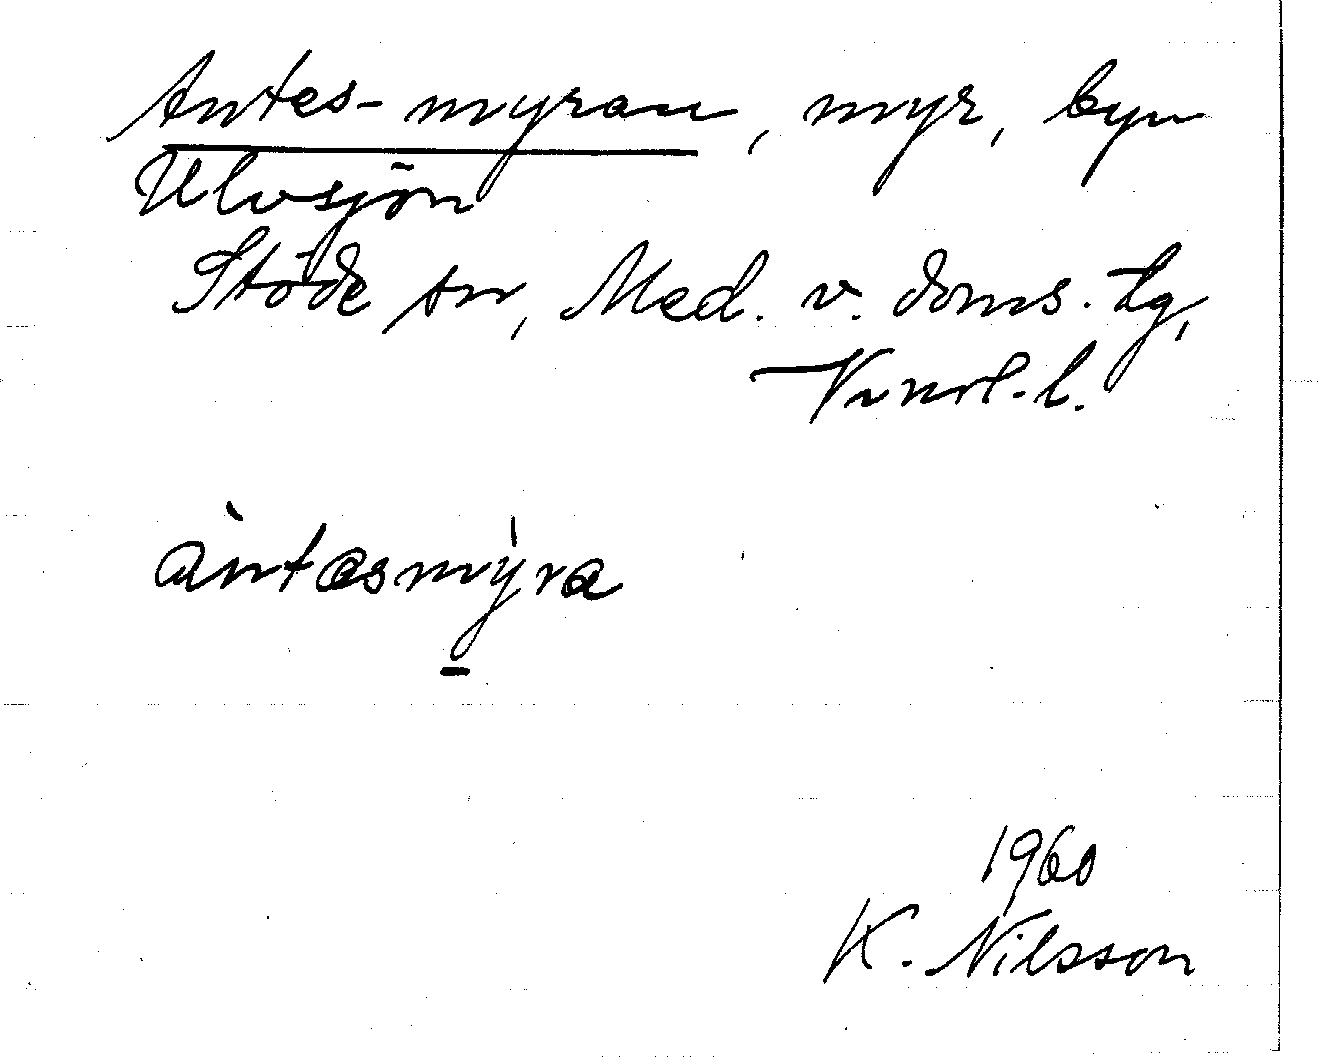 Antes-myran, myr, byn
Ulvsjön
Stöde sn, Med. v. doms. tg,
Vnorl. l.
àntasmy̱̍ra
1960
K. Nilsson